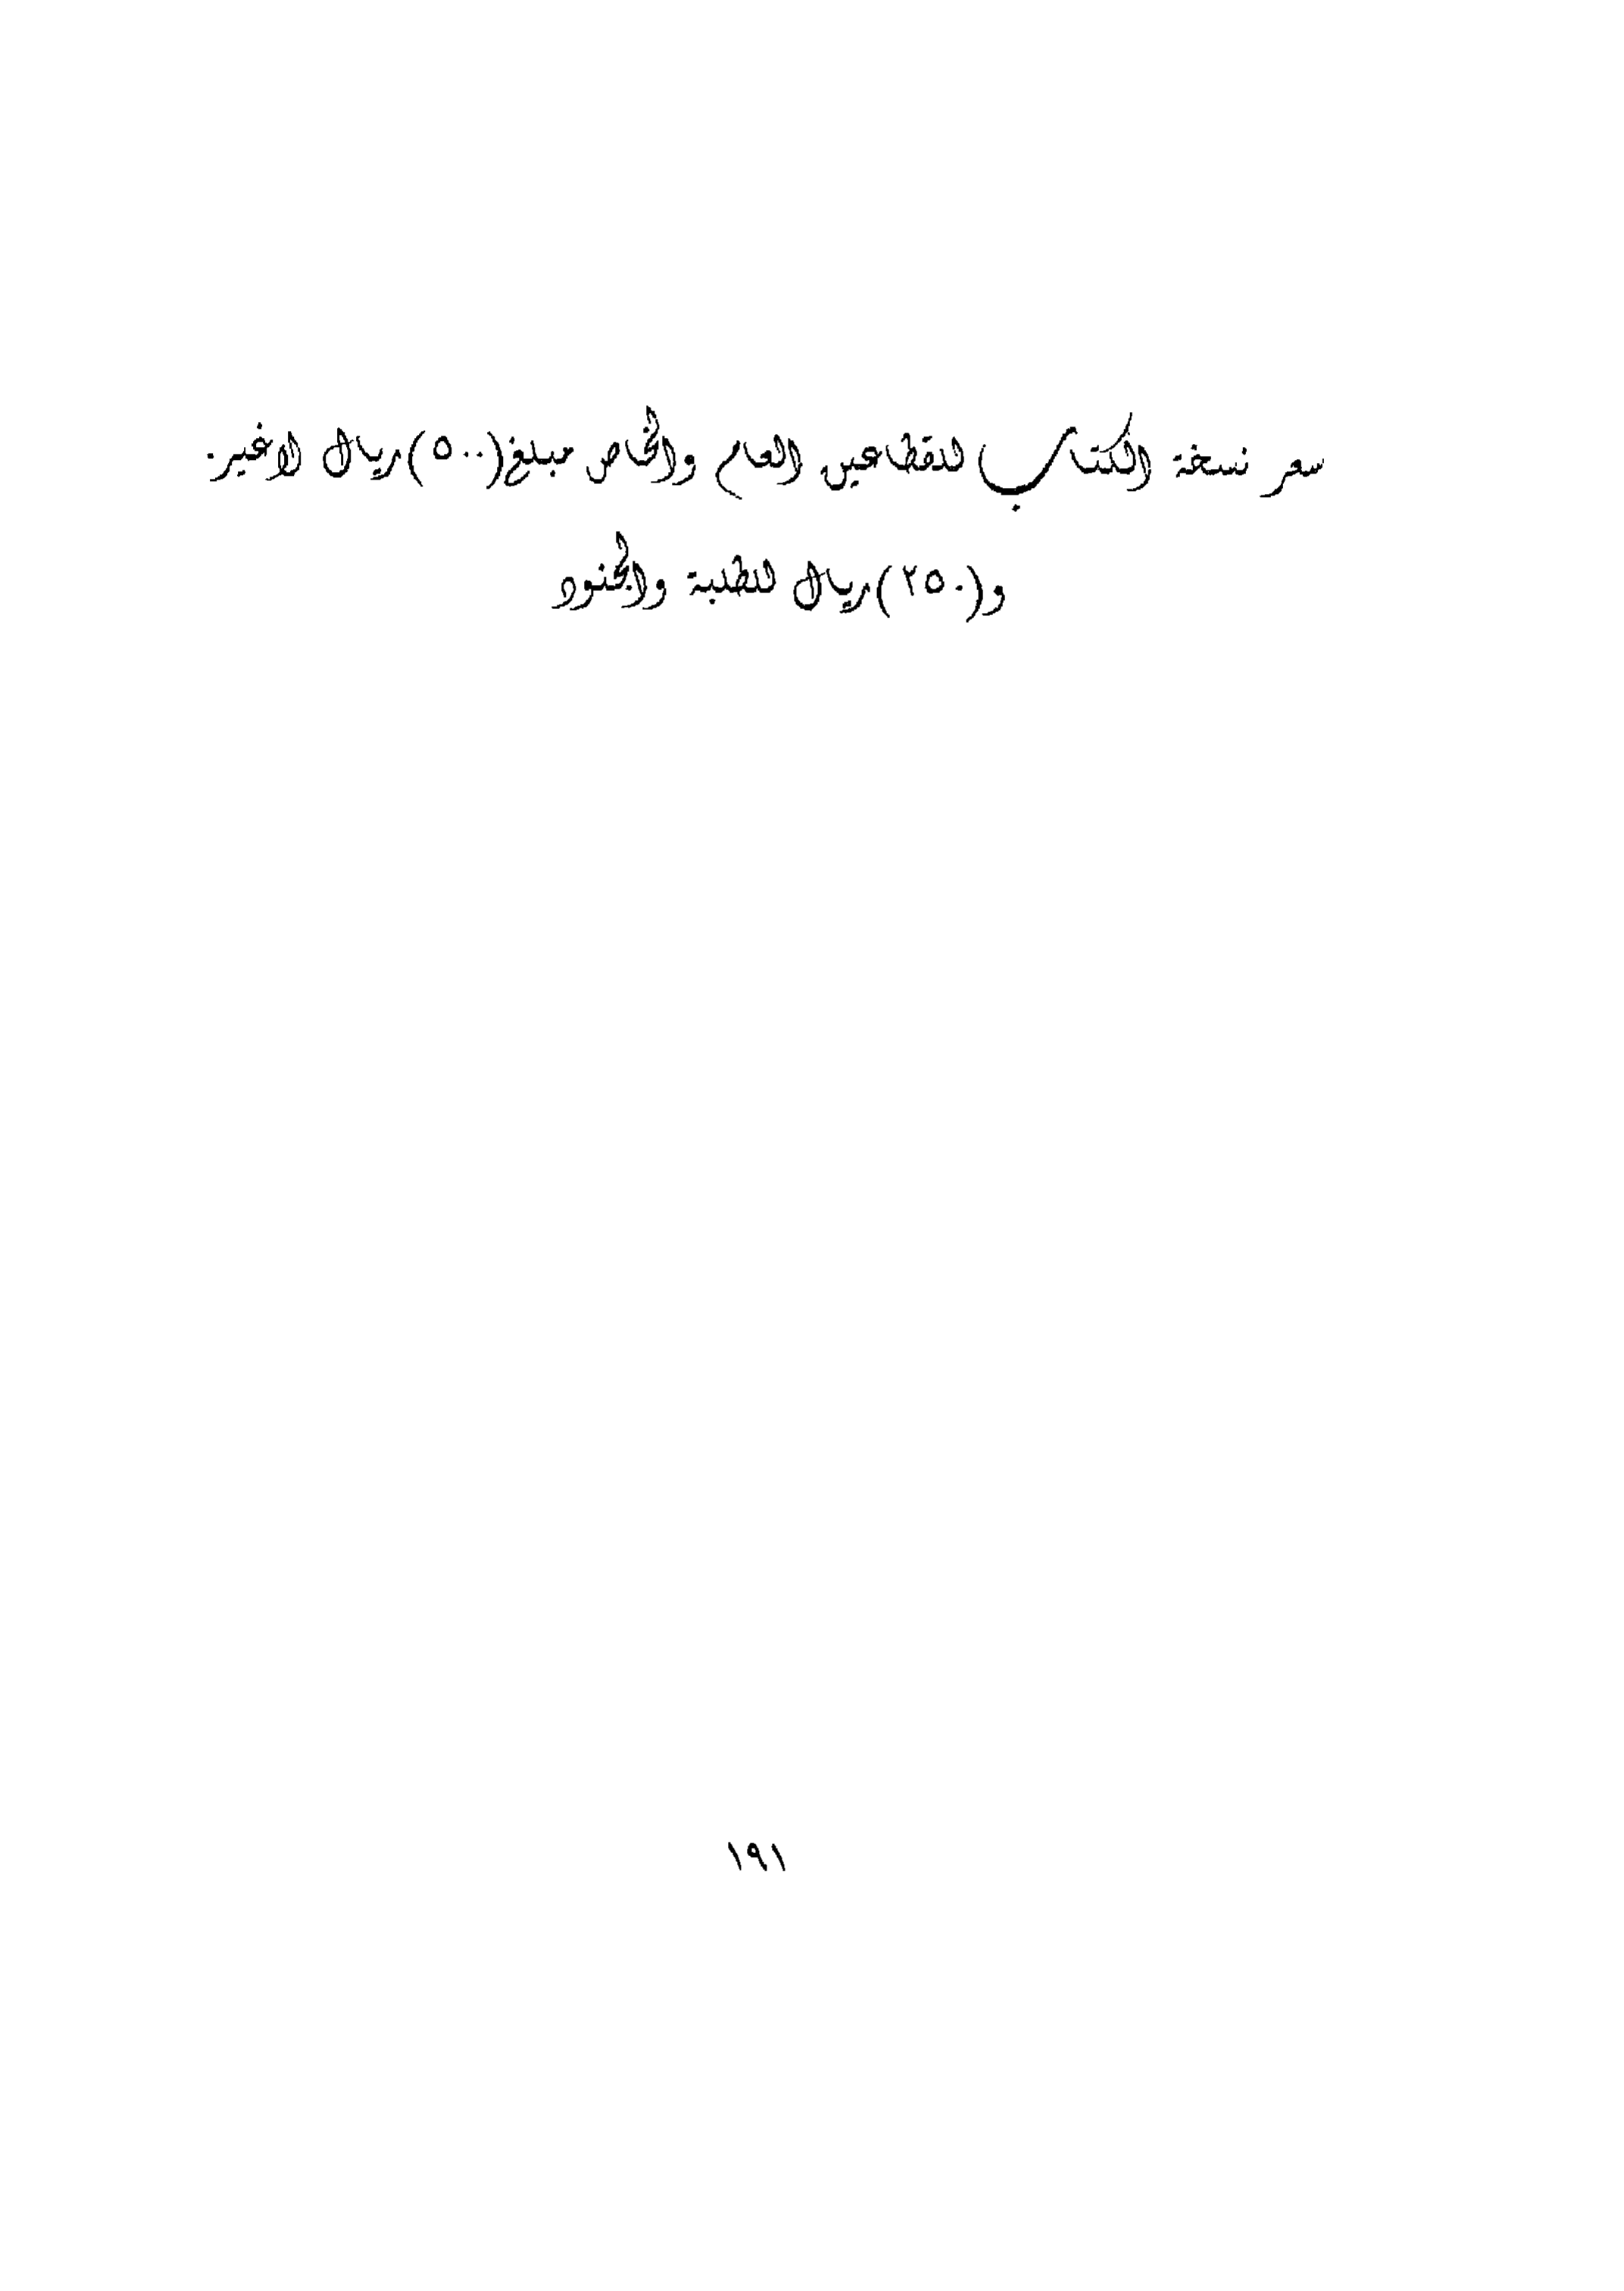 سعر نسخة الكتاب للقطاعين العام والخاص مبلغ (٥٠٠) ريال لاغير.
و(٢٥٠) ريال للطلبة والجنود
١٩١